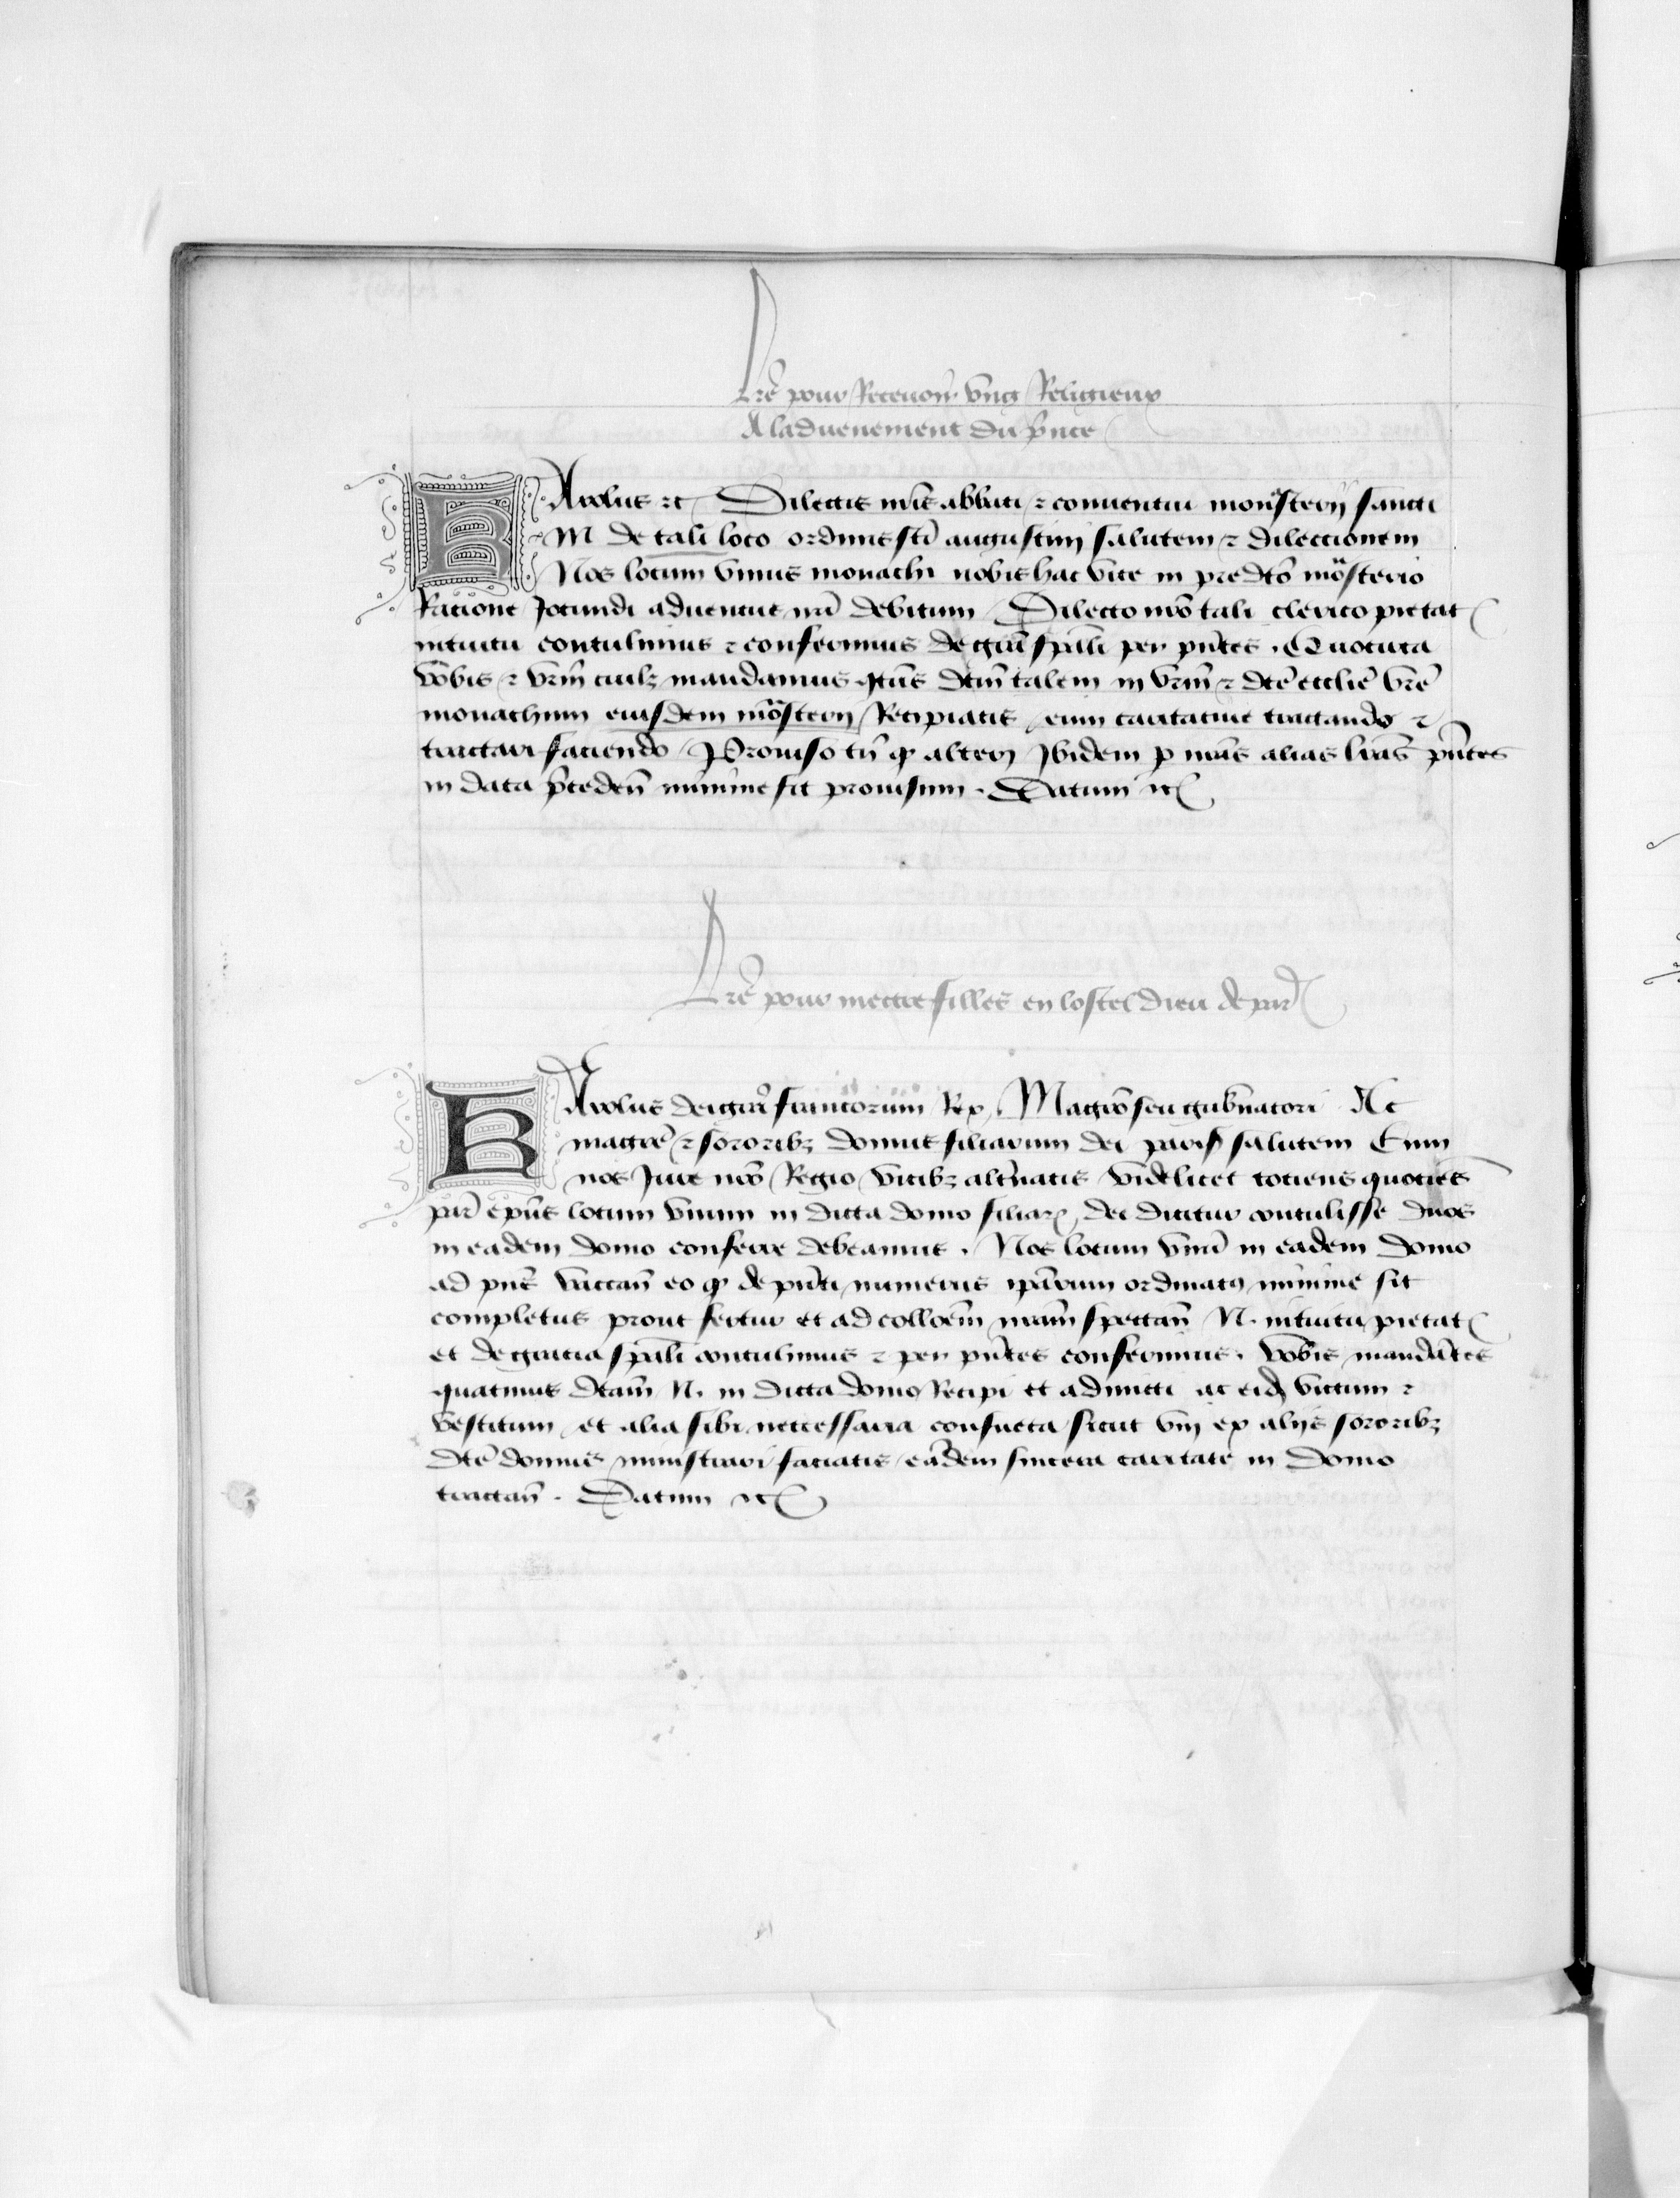 Lre pour Recevoir ung Religieux
A ladvenement du prince
KArolus etc Dilectis nris abbati et conventui monasterii sancti
M de tali loco ordinis sti augustini salutem et dilectionem
Nos locum unius monachi nobis hac vice in predto monsterio
Ratione Jocundi adventus nri debitum Dilecto nro tali clerico pietat
intuitu contulimus et conferimus de gra spali per pntes. Quocirca
vobis et vrm cuilz mandamus qtus dtm talem in vrm et dte ecclie vre
monachum eiusdem monsterii Recipiatis eum caritative tractando et
tractari faciendo Proviso tn qd alteri Ibidem p nras alias lras pntes
in data precedent minime sit provisum. Datum etc
Lre pour mectre filles en lostel dieu de par
KArolus dei gra francorum Rex, Magro seu gubnatori Ac
magre et sororibz domus filiarum dei paris salutem Cum
nos Jure nro Regio vicibz altnatis videlicet totiens quotiens
par epus locum unum in dicta domo filiar dei dicitur contulisse duos
in eadem domo conferre debeamus. Nos locum unu in eadem domo
ad pns vaccan eo qd de pnti numerus ipsarum ordinatus minime sit
completus prout fertur et ad colloem nram spectan N. intuitu pietat
et de gracia spali contulimus et per pntes conferimus. vobis mandantes
quatinus dtam N. in dicta domo Recipi et admicti ac eid victum et
vestitum et alia sibi neccessaria consueta sicut uni ex aliis sororibz
dte domus ministrari faciatis eandem sincera caritate in domo
tractan. Datum etc